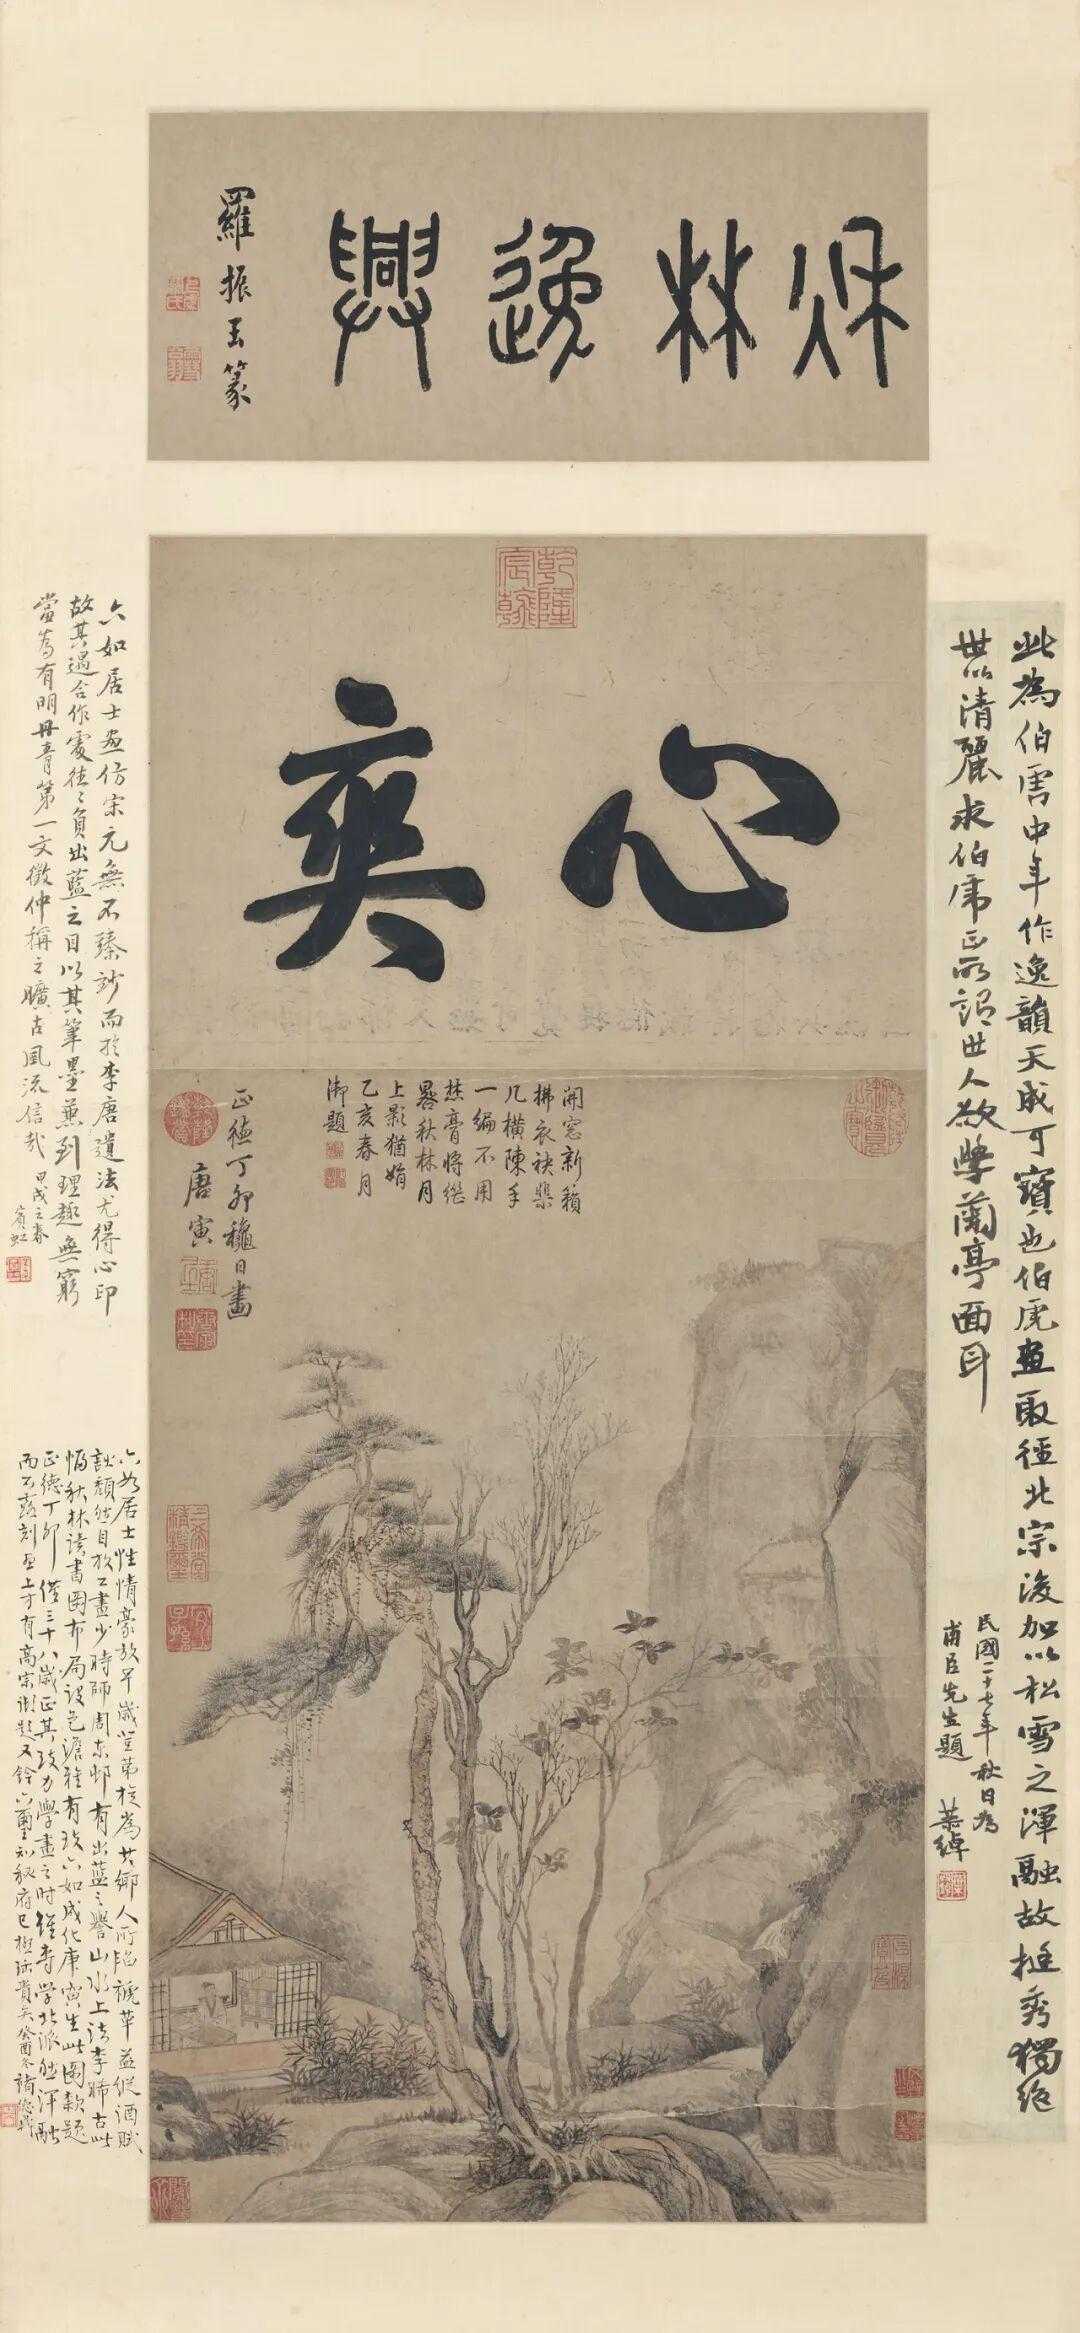 秋林逸興
羅振玉篆
乾隆宸翰
心爽
開窓新籟
拂衣袂棐
几橫陳手
一編不用
焚膏將繼
晷秋林月
上影猶娟
乙亥春月
御題
正德丁卯穐日畫
唐寅
此為伯虎中年作逸韻天成可寶也伯虎畫取徑北宗後加以松雪之渾融故挺秀獨絕
世以清麗求伯虎正所謂世人欲學蘭亭面耳
民國二十七年秋日為
甫臣先生題 恭綽
六如居士畫仿宋元無不臻妙而於李唐遺法尤得心印
故其遇合作處往往負出藍之目以其筆墨兼到理趣無窮
當為有明丹青第一文徵仲稱之曠古風流信哉 甲戌之春
賓虹
六如居士性情豪放早歲登第旋為其鄉人所陷褫革益縱酒賦
詩頹然自放工畫少時師周東邨有出藍之譽山水上法李晞古此
幀秋林讀書圖布局設色澹雅有致六如成化庚寅生此圖款題
正德丁卯僅三十八歲正其致力學畫之時雖專學北派然渾融
而不露刻畫上方有高宗御題又鈐六璽知秘府已極珍貴矣癸酉冬褚德彝